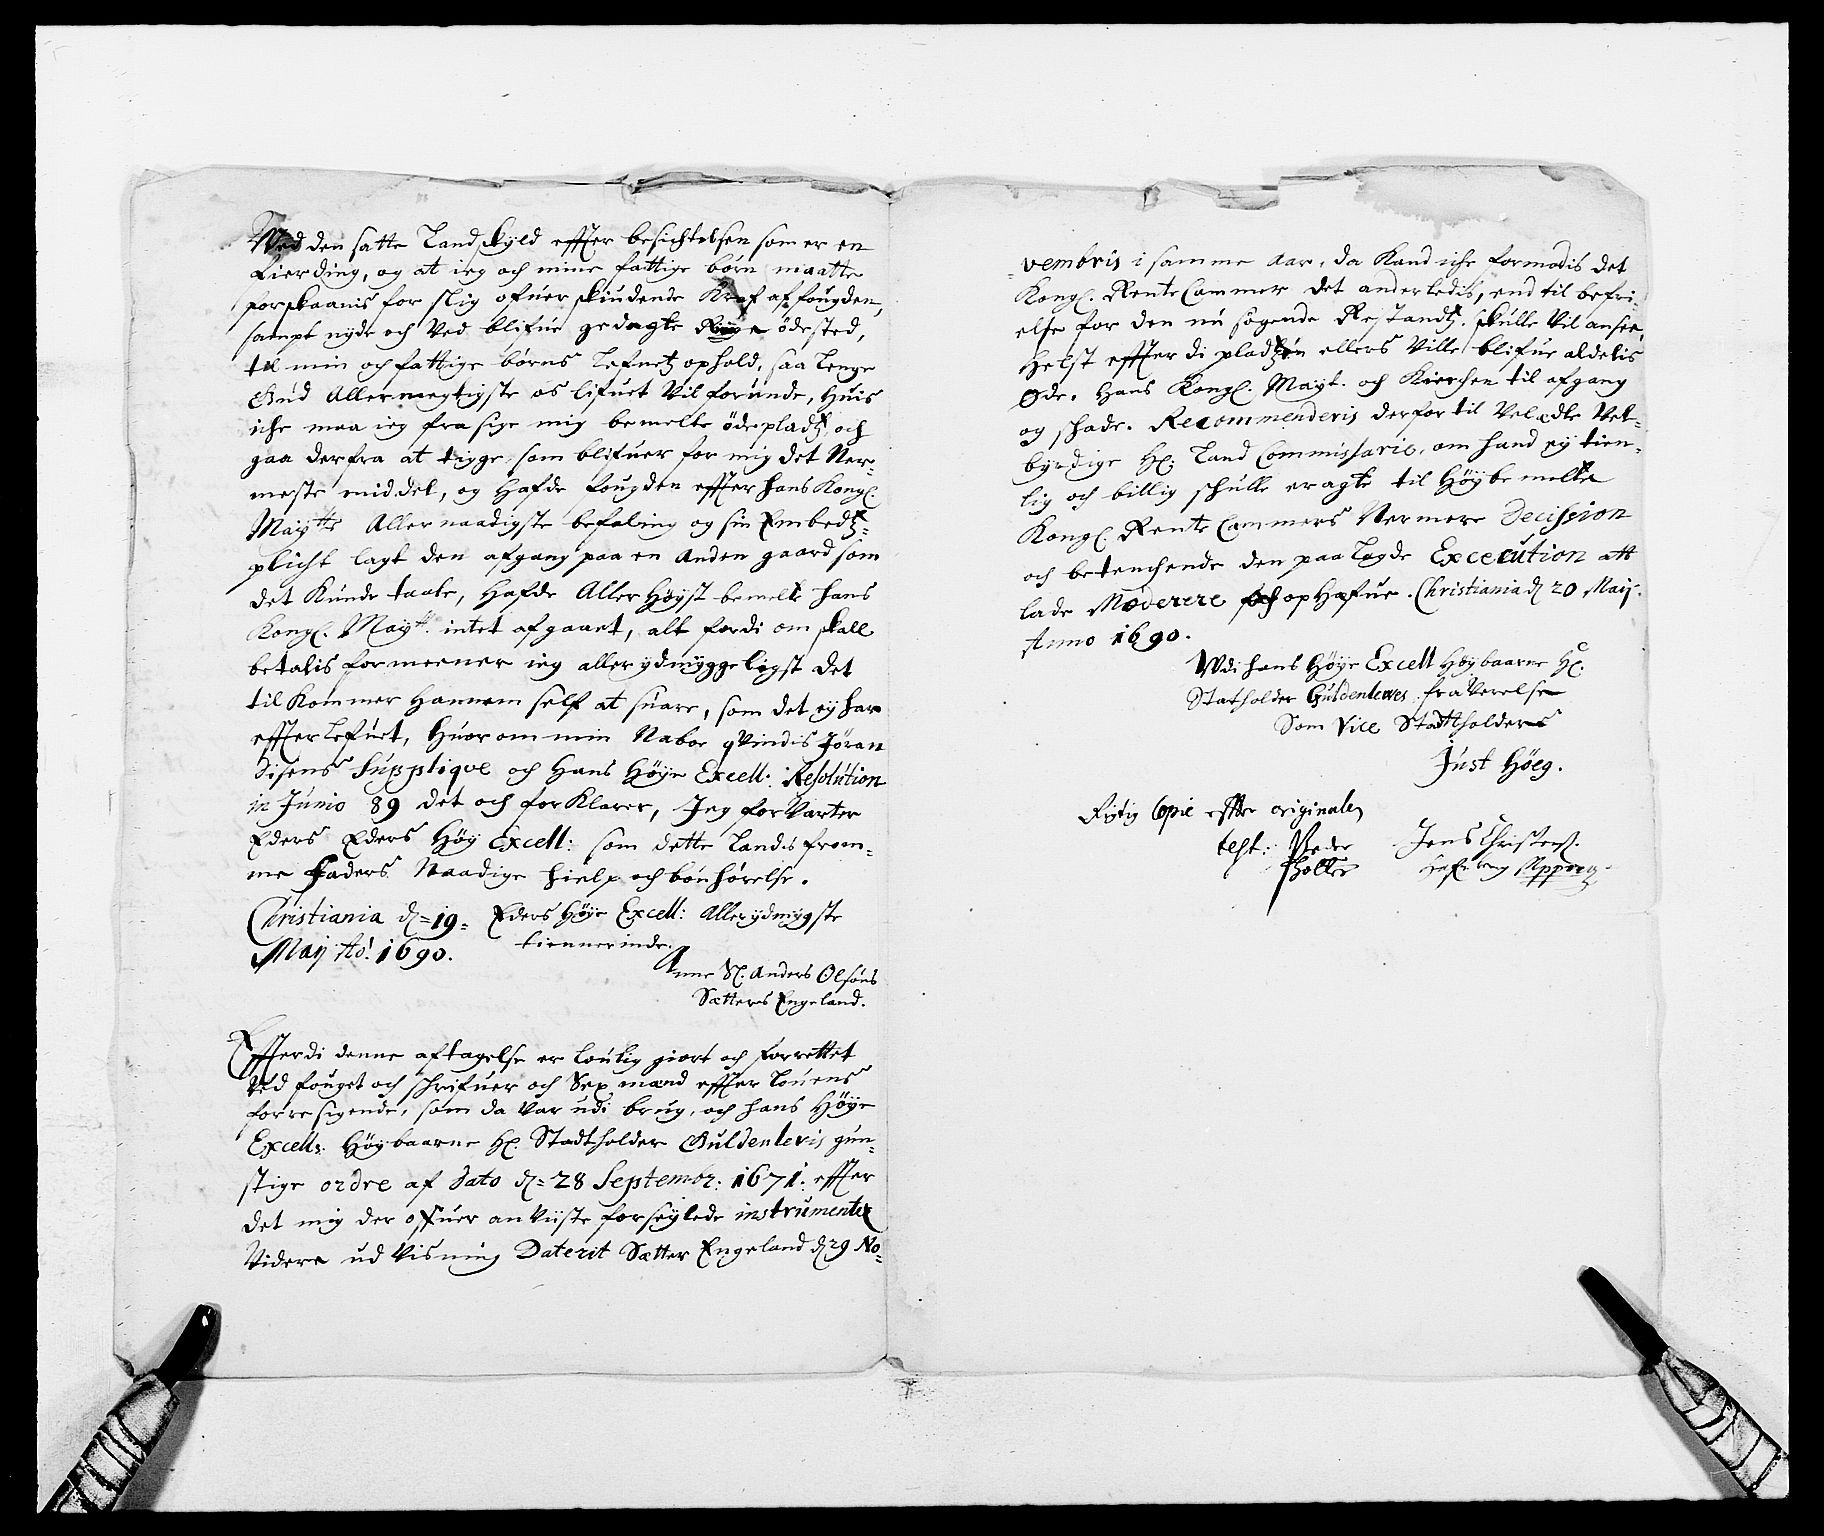 Ved den satte Landskyld effter besichtelsen som er en
Fierding, og at ieg och mine fattige börn maatte
forskaanis for slig ofuerskiudende Kraf af fougden,
sampt nyde och Ved blifue gedagte Ringe ödested,
til min och fattige börns Lefnetz ophold, saa lenge
Gud Allermegtigste os lifuet Vil forunde, Huis
iche maa ieg frasige mig bemelte ödepladtz och
gaa derfra at tigge, som blifuer for mig det Ner-
meste middel, og Hafde fougden effter Hans Kongl.
Maytts Allernaadigste befaling og sin Embedtz-
plicht lagt den afgang paa en Anden gaard som
det Kunde taale, Hafde AllerHöyst bemelte Hans
Kongl. Maytt. intet afgaaet, alt fordi om skall
betalis formeener ieg allerydmyggeligst det
tilKommer Hannem self at suare, som det ey har
effterlefuet, Huorom min Naboe qvindis Jöran
Sisens Supplique och Hans Höye Excell. Resolution
in Junio 89 det och forKlarer, Jeg forVarter
Eders Eders Höy Excell: som dette Landis from-
me Faders Naadige Hielp och bönhörelse.
Christiania d= 19= Eders Höye Excell: Allerydmygste
Maij Ao. 1690. tiennerinde.
Anne Sl. Anders Olsöns
Sætters Engeland.
Effterdi denne aftagelse er loulig giort och forrettet
Ved fouget och schrifuer och Sex mænd effter Louens
forresigende, som da var udi brug, och Hans Höye
Excells. Höybaarne Hr. Stadtholder Guldenlevis gun-
stige ordre af Dato d= 28 Septembr: 1671: effter
det mig der ofuer anviiste forseylede instrumentes
Videre udvisning Daterit Sætter Engeland d 29 No-
vembris i samme Aar, da Kand iche formodis det
Kongl. RenteCammer det anderledis, end til befri-
else for den nu sögende Restandtz skulle Vil ansee,
Helst effterdi pladtzen ellers Ville blifue aldelis
Öde. Hans Kongl. Mayt. och Kierchen til afgang
og schade. Recommenderis derfor til Velædle Vel-
byrdige Hr. Land Commissarie, om Hand ey tien-
lig och billig schulle eragte til Höybemelte
Kongl. Rente Cammers Nermere Decission
och betenchende den paalagde Excecution att
lade Moderere och opHæfue. Christiania d 20 Maij.
Anno 1690.
Udi Hans Höye Excell Höybaarne Hr.
Statholder Guldenleves fraVerelse
Som Vice Stadtholder
Just Höeg.
Rigtig Copie effter originalen
test: Peder Jens Christens.
Holter